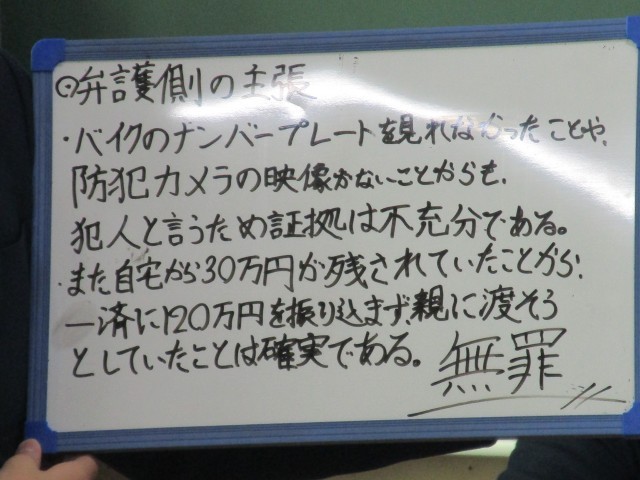 ⊙弁護側の主張
・バイクのナンバープレートを見れなかったことや、
防犯カメラの映像がないことからも、
犯人と言うため証拠は不充分である。
・また自宅から30万円が残されていたことから、
一済に120万円を振り込まず、親に渡そう
としていたことは確実である。
無罪